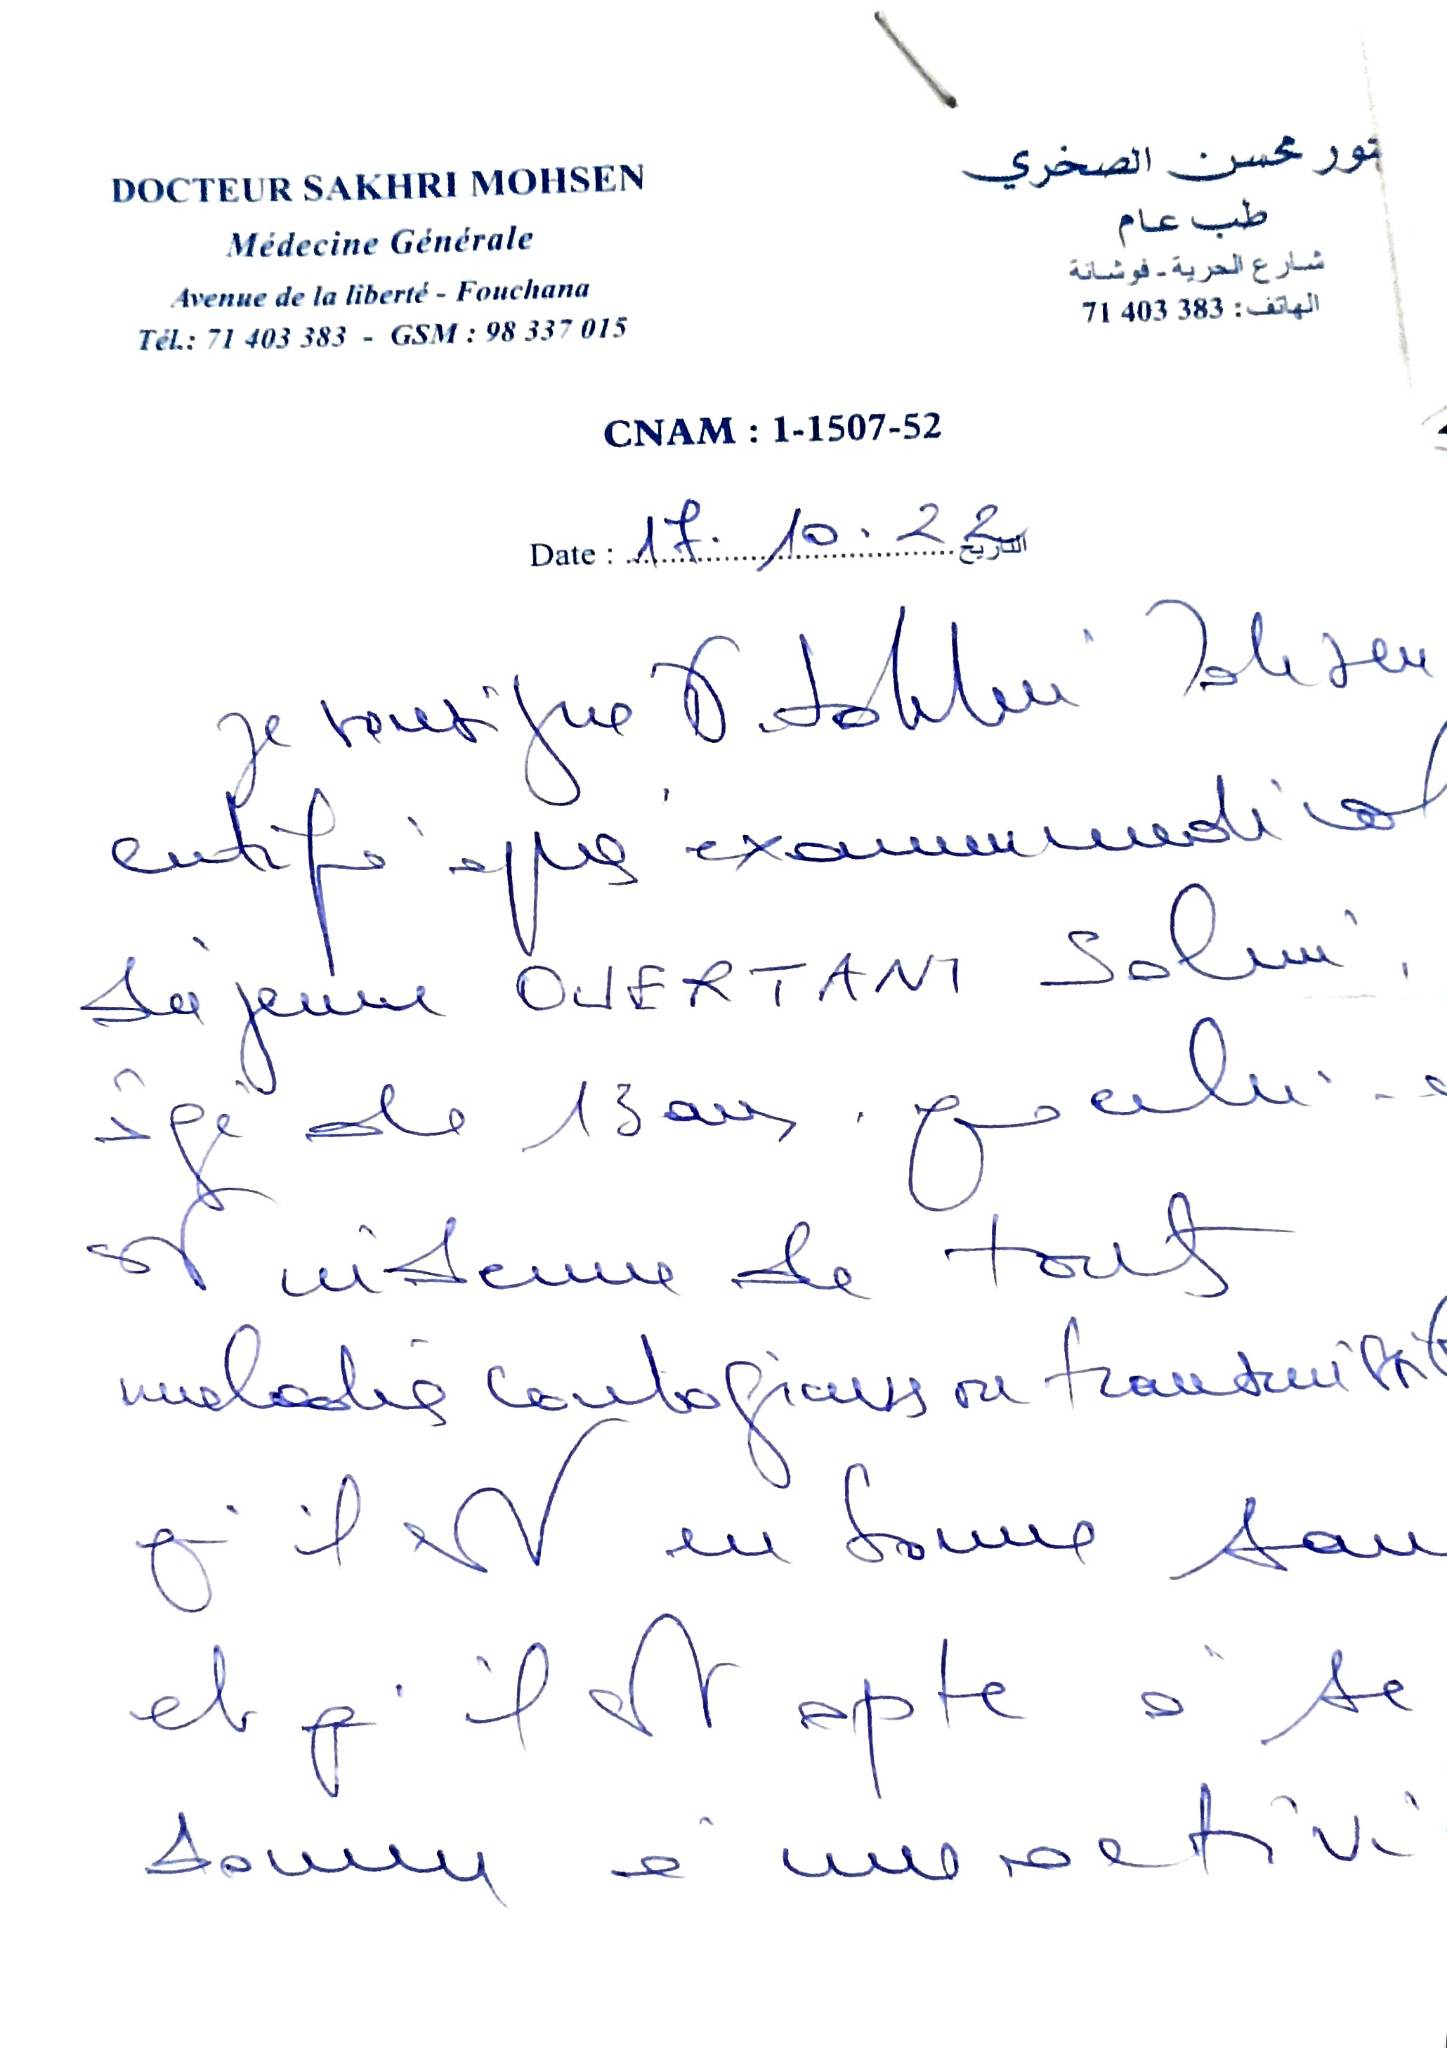 DOCTEUR SAKHRI MOHSEN
Médecine Générale
Avenue de la liberté - Fouchana
Tél.: 71 403 383 - GSM : 98 337 015
تور محسن الصخري
طب عام
شارع الحرية - فوشانة
الهاتف: 383 403 71
CNAM : 1-1507-52
Date : 17.10.22 التاريخ
Je soussigné Dr Sakhri Mohsen
certifie après examen medical
jeune OUERTANI Selmi,
âgé de 13 ans. que celui-
est indemne de toute
maladie contagieuse ou transmissi
qu'il est en bonne san
et qu'il est apte à se
donner à une activi